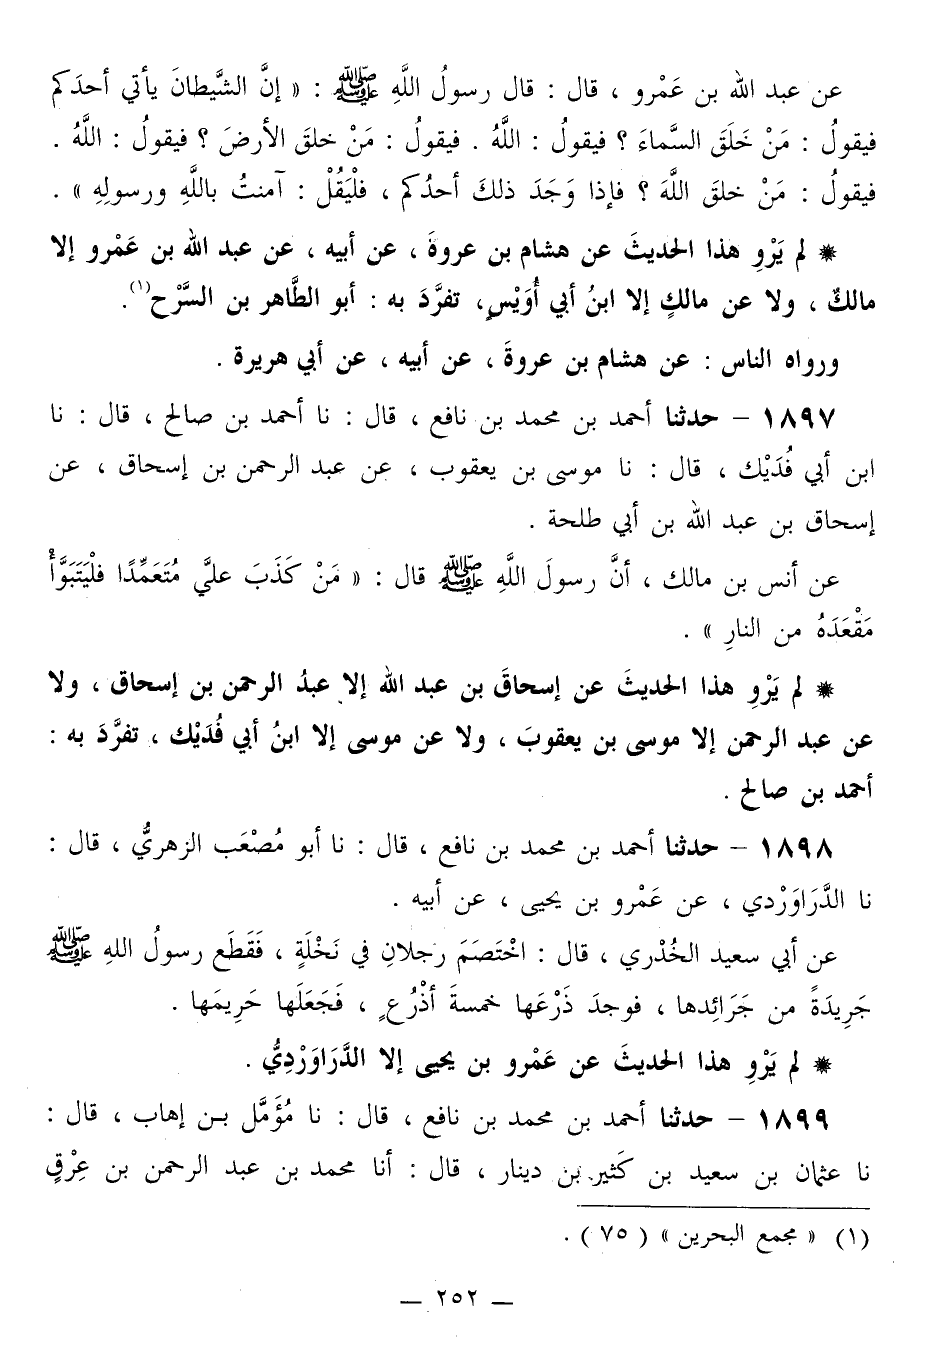 عن عبد الله بن عَمْرو ، قال : قال رسولُ اللَّهِ ﷺ : « إنَّ الشَّيطانَ يأتي أحدَكم
فيقولُ : مَنْ خَلَقَ السَّماءَ ؟ فيقولُ : اللَّهُ . فيقولُ : مَنْ خلقَ الأرضَ ؟ فيقولُ : اللَّهُ .
فيقولُ : مَنْ خلقَ اللَّهَ ؟ فإذا وَجَدَ ذلكَ أحدُكم ، فلْيَقُلْ : آمنتُ باللَّهِ ورسولِهِ » .
* لم يَرْوِ هذا الحديثَ عن هشام بن عروةَ ، عن أبيه ، عن عبد الله بن عَمْرو إلا
مالكٌ ، ولا عن مالكٍ إلا ابنُ أبي أُوَيْسٍ، تفرَّدَ به : أبو الطَّاهر بن السَّرْح(١).
ورواه الناس : عن هشام بن عروةَ ، عن أبيه ، عن أبي هريرة .
١٨٩٧ – حدثنا أحمد بن محمد بن نافع ، قال : نا أحمد بن صالح ، قال : نا
ابن أبي فُدَيْك ، قال : نا موسى بن يعقوب ، عن عبد الرحمن بن إسحاق ، عن
إسحاق بن عبد الله بن أبي طلحة .
عن أنس بن مالك ، أنَّ رسولَ اللَّهِ ﷺ قال : « مَنْ كَذَبَ عليَّ مُتَعَمِّدًا فلْيَتَبَوَّأْ
مَقْعَدَهُ من النارِ » .
* لم يَرْوِ هذا الحديثَ عن إسحاقَ بن عبد الله إلا عبدُ الرحمن بن إسحاق ، ولا
عن عبد الرحمن إلا موسى بن يعقوبَ ، ولا عن موسى إلا ابنُ أبي فُدَيْك ، تفرَّدَ به :
أحمد بن صالح .
١٨٩٨ – حدثنا أحمد بن محمد بن نافع ، قال : نا أبو مُصْعَب الزهريُّ ، قال :
نا الدَّرَاوَرْدي ، عن عَمْرو بن يحيى ، عن أبيه .
عن أبي سعيد الخُدْري ، قال : اخْتَصَمَ رجلانِ في نَخْلَةٍ ، فَقَطَع رسولُ اللهِ ﷺ
جَرِيدَةً من جَرَائِدها ، فوجدَ ذَرْعَها خمسةَ أذْرُعٍ ، فَجَعَلَها حَرِيمَها .
* لم يَرْوِ هذا الحديثَ عن عَمْرو بن يحيى إلا الدَّرَاوَرْدِيُّ .
١٨٩٩ – حدثنا أحمد بن محمد بن نافع ، قال : نا مُؤَمَّل بن إهاب ، قال :
نا عثمان بن سعيد بن كَثير بن دينار ، قال : أنا محمد بن عبد الرحمن بن عِرْقٍ
(١) « مجمع البحرين » ( ٧٥ ) .
— ٢٥٢ —